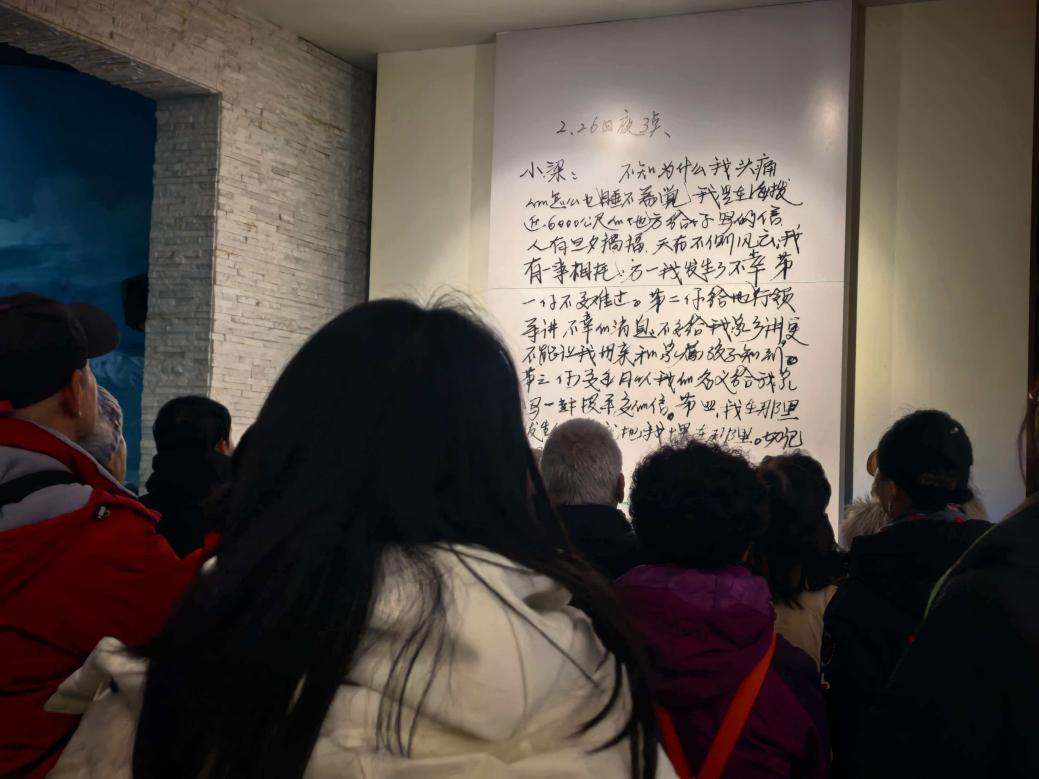 2.26日夜3点、
小梁： 不知为什么我头痛
怎么也睡不着觉 我是在海拔
近.6000公尺的地方给你写的信.
人有旦夕祸福、天有不测风云，我
有一事相托：万一我发生了不幸 第
一你不要难过。第二你给地行领
导讲 不幸的消息不要给我家乡讲更
不能让我母亲和家属孩子知到。
第三 你要每月以我的名义给我家
写一封报平安的信。第四，我在那里
发生 把我埋在那里。切记